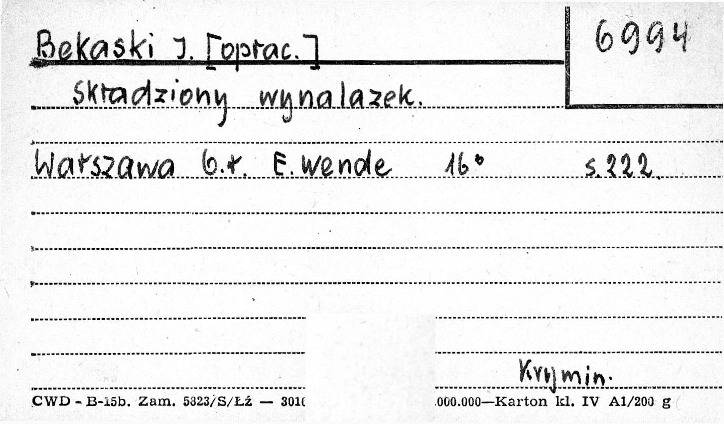 6994
Bekaski J. [oprac.]
Skradziony wynalazek.
Warszawa b.r. E. Wende 16° s. 222.
Krymin.
CWD - B-15b. Zam. 5823/S/Łź — 301 .000.000—Karton kl. IV A1/200 g